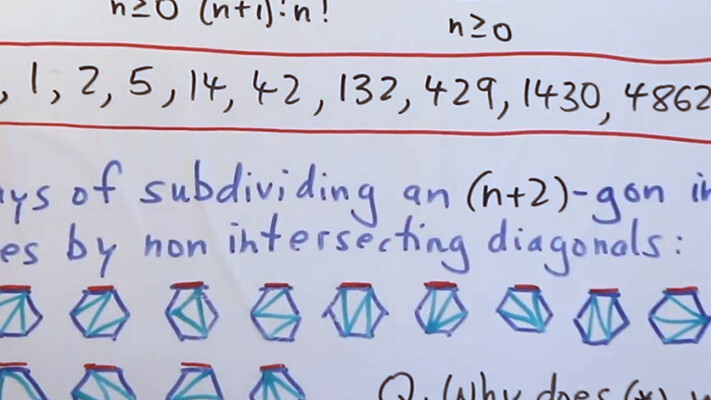 n≥0 (n+1)!n! n≥0
, 1, 2, 5, 14, 42, 132, 429, 1430, 4862
ys of subdividing an (n+2)-gon in
es by non intersecting diagonals:
Q. Why does (*)